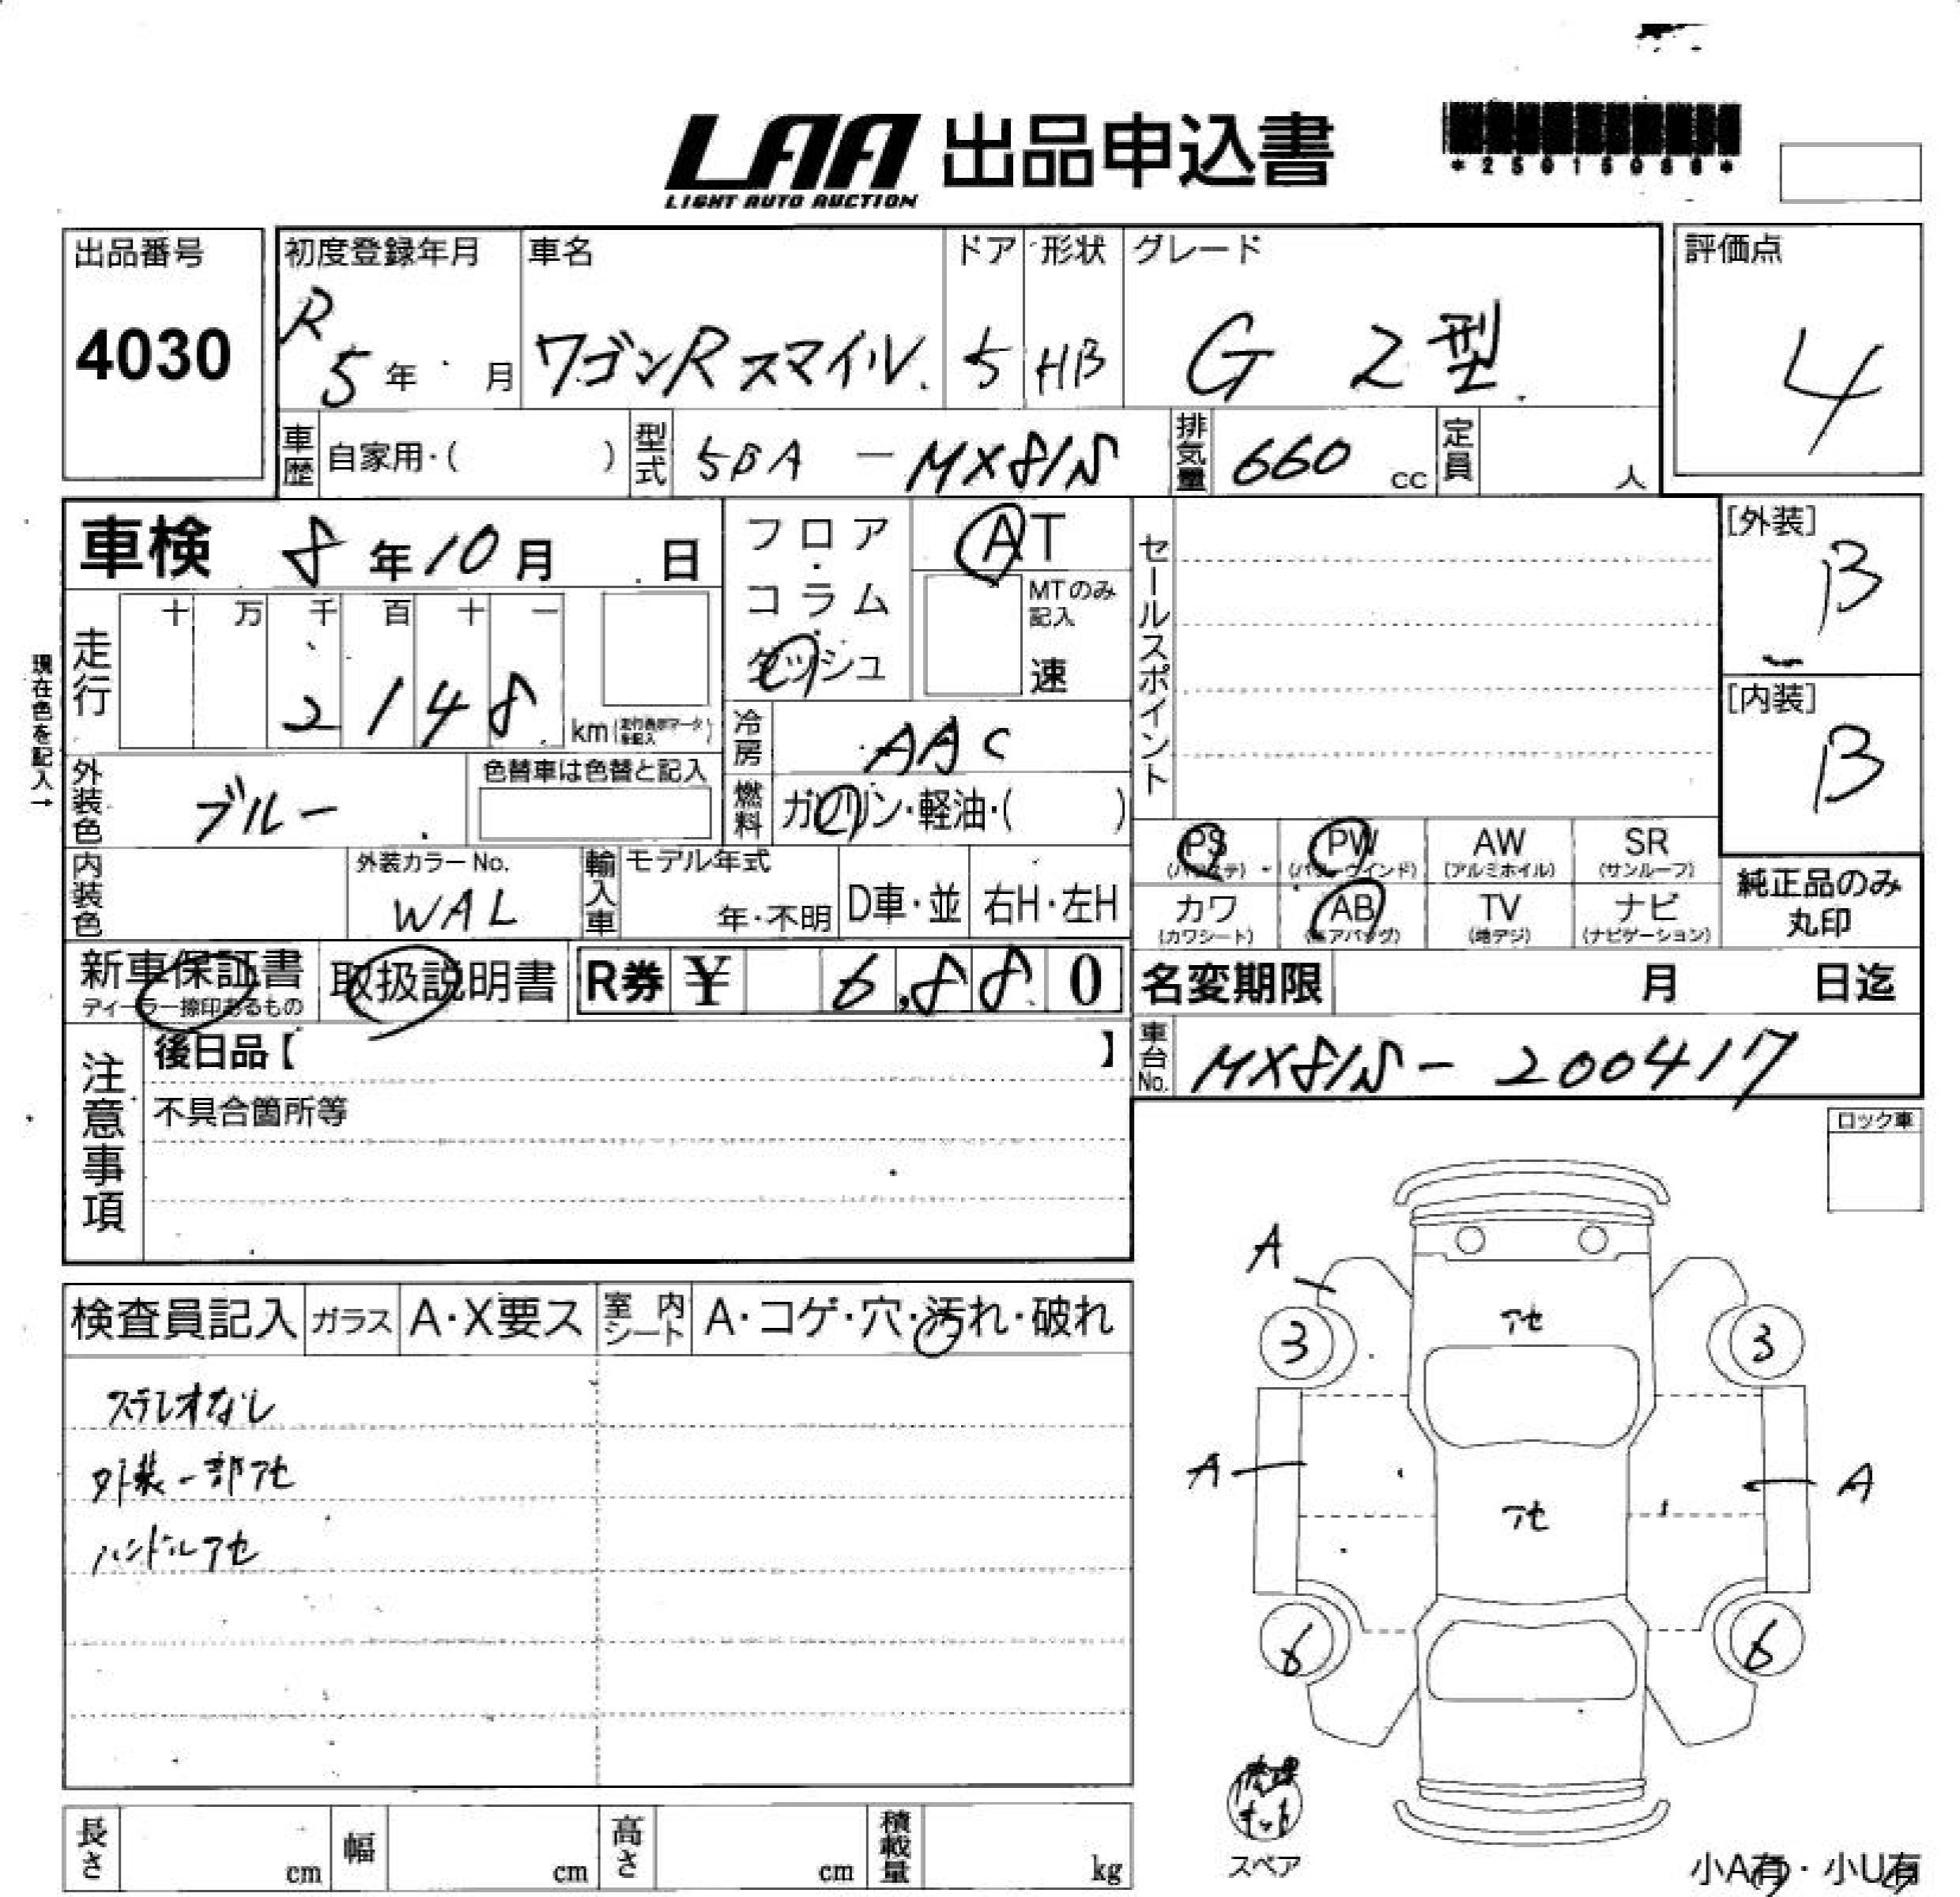 LAA 出品申込書
LIGHT AUTO AUCTION
出品番号
4030
初度登録年月
R
5年 月
車名
ワゴンRスマイル
ドア
5
形状
HB
グレード
G 2型
評価点
4
車歴
自家用・( )
型式
5BA-MX81S
排気量
660 cc
定員
人
車検 8年10月 日
フロア・コラム
ダッシュ
AT
MTのみ記入
速
セールスポイント
[外装]
B
[内装]
B
現在色を記入→
走行
十 万 千 百 十 一
2 1 4 8
km
冷房
AAC
外装色
ブルー
色替車は色替と記入
燃料
ガソリン・軽油・( )
内装色
外装カラーNo.
WAL
輸入車
モデル年式
年・不明
D車・並
右H・左H
PS
(パワステ)
PW
(パワーウインド)
AW
(アルミホイル)
SR
(サンルーフ)
カワ
(カワシート)
AB
(エアバッグ)
TV
(地デジ)
ナビ
(ナビゲーション)
純正品のみ
丸印
新車保証書
ディーラー捺印あるもの
取扱説明書
R券 ¥ 6,880
名変期限 月 日迄
車台No.
MX81S-200417
注意事項
後日品【 】
不具合箇所等
ロック車
検査員記入
ガラス
A・X要ス
室内
シート
A・コゲ・穴・汚れ・破れ
ステレオなし
外装一部アセ
ハンドルアセ
A
アセ
3
3
A
A
アセ
6
6
修理
キット
スペア
小A有・小U有
長さ cm
幅 cm
高さ cm
積載量 kg